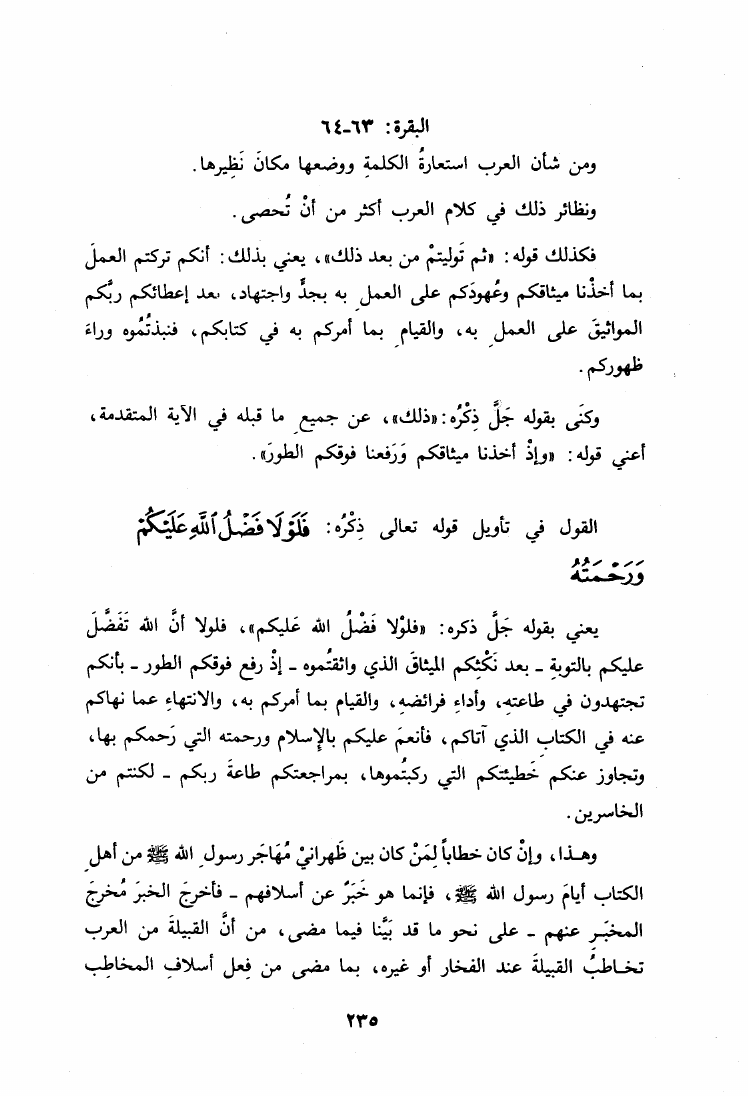 البقرة: ٦٣-٦٤
ومن شأن العرب استعارةُ الكلمةِ ووضعها مكانَ نَظِيرها.
ونظائر ذلك في كلام العرب أكثر من أنْ تُحصى.
فكذلك قوله: «ثم تَوليتمْ من بعد ذلك»، يعني بذلك: أنكم تركتم العملَ
بما أخذْنا ميثاقكم وعُهودَكم على العملِ به بجدٍّ واجتهاد، بعد إعطائكم ربَّكم
المواثيقَ على العملِ به، والقيامِ بما أمركم به في كتابكم، فنبذتُمُوه وراءَ
ظهوركم.
وكنَى بقوله جَلَّ ذِكْرُه: «ذلك»، عن جميعِ ما قبله في الآية المتقدمة،
أعني قوله: «وإذْ أخذنا ميثاقكم وَرَفعنا فوقكم الطورَ».
القول في تأويل قوله تعالى ذِكْرُه: فَلَوْلَا فَضْلُ ٱللَّهِ عَلَيْكُمْ
وَرَحْمَتُهُ
يعني بقوله جَلَّ ذكره: «فلوْلا فَضْلُ الله عَليكم»، فلولا أنَّ الله تَفَضَّلَ
عليكم بالتوبةِ ـ بعد نَكْثِكم الميثاقَ الذي واثقتُموه ـ إذْ رفع فوقكم الطور ـ بأنكم
تجتهدون في طاعتهِ، وأداءِ فرائضهِ، والقيام بما أمركم به، والانتهاءِ عما نهاكم
عنه في الكتابِ الذي آتاكم، فأنعمَ عليكم بالإِسلام ورحمته التي رَحمكم بها،
وتجاوز عنكم خَطيئتكم التي ركبتُموها، بمراجعتكم طاعةَ ربكم ـ لكنتم من
الخاسرين.
وهـذا، وإنْ كان خطاباً لِمَنْ كان بين ظَهرانيْ مُهَاجَر رسولِ الله ﷺ من أهلِ
الكتاب أيامَ رسول الله ﷺ، فإنما هو خَبَرٌ عن أسلافهم ـ فأخرجَ الخبرَ مُخرجَ
المخبَرِ عنهم ـ على نحو ما قد بَيَّنا فيما مضى، من أنَّ القبيلةَ من العرب
تخـاطبُ القبيلةَ عند الفخار أو غيره، بما مضى من فِعل أسلافِ المخاطِب
٢٣٥